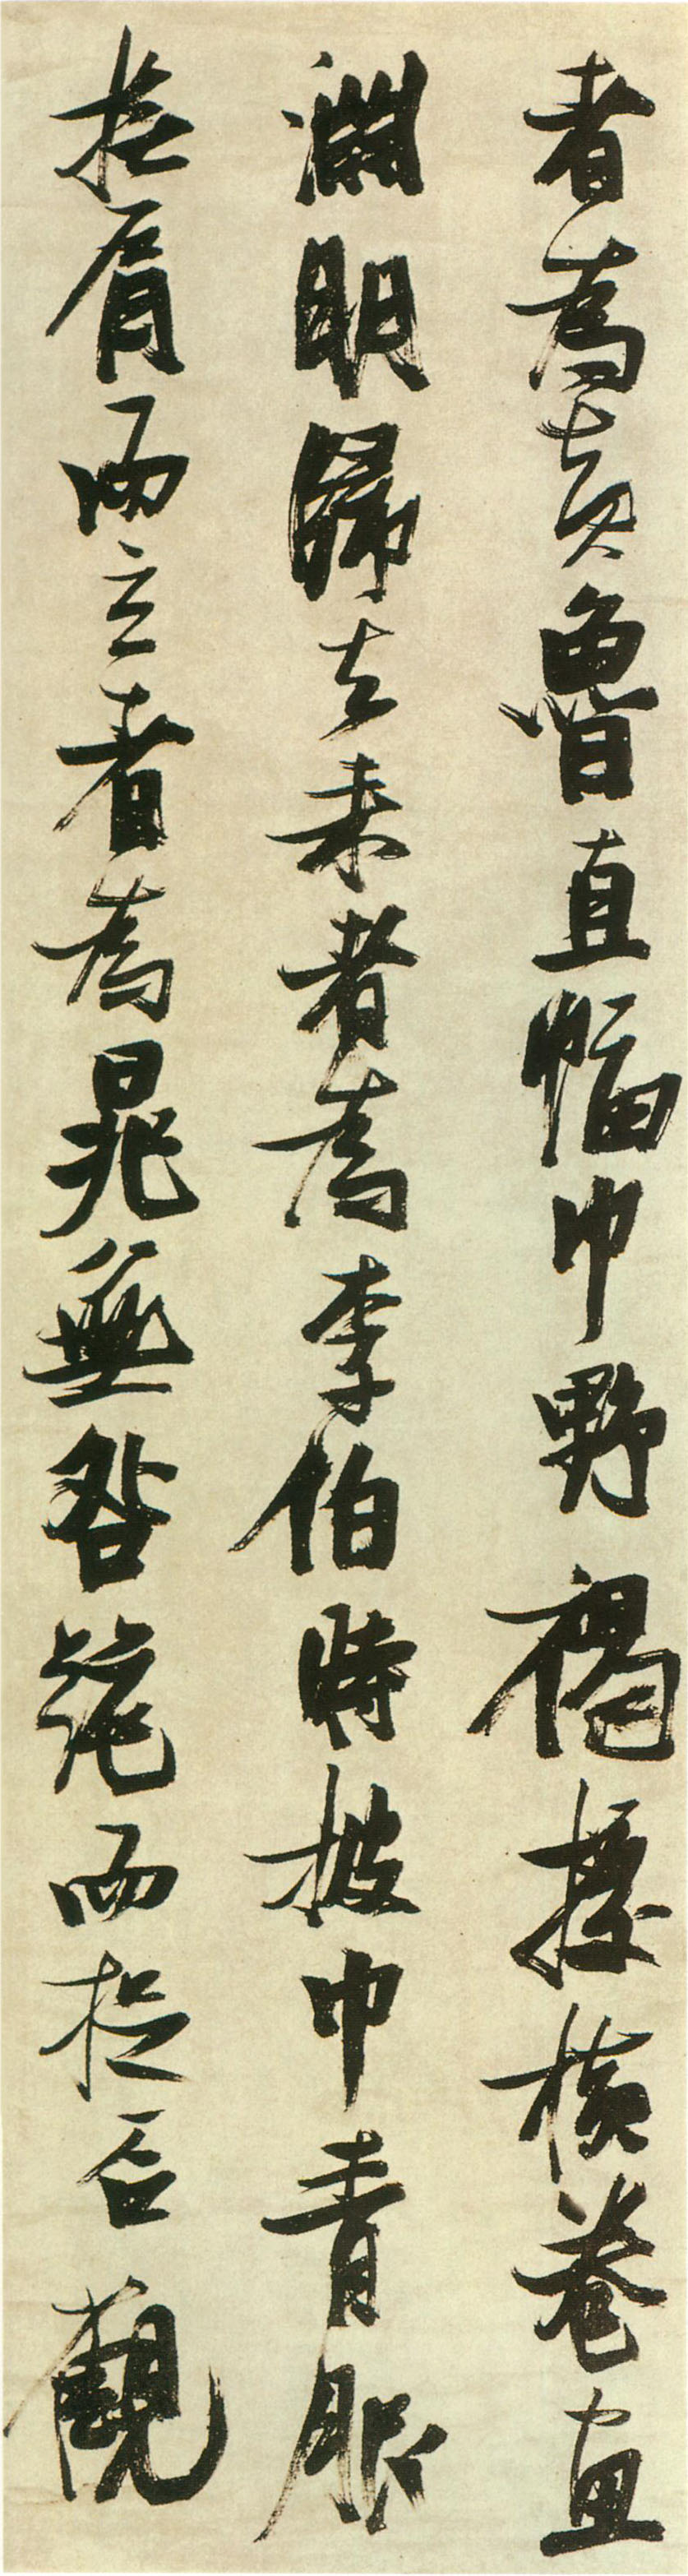 者為黃魯直幅巾野褐據橫卷畫
淵明歸去来者為李伯時披巾青服
撫肩而立者為晁無咎跪而捉石觀